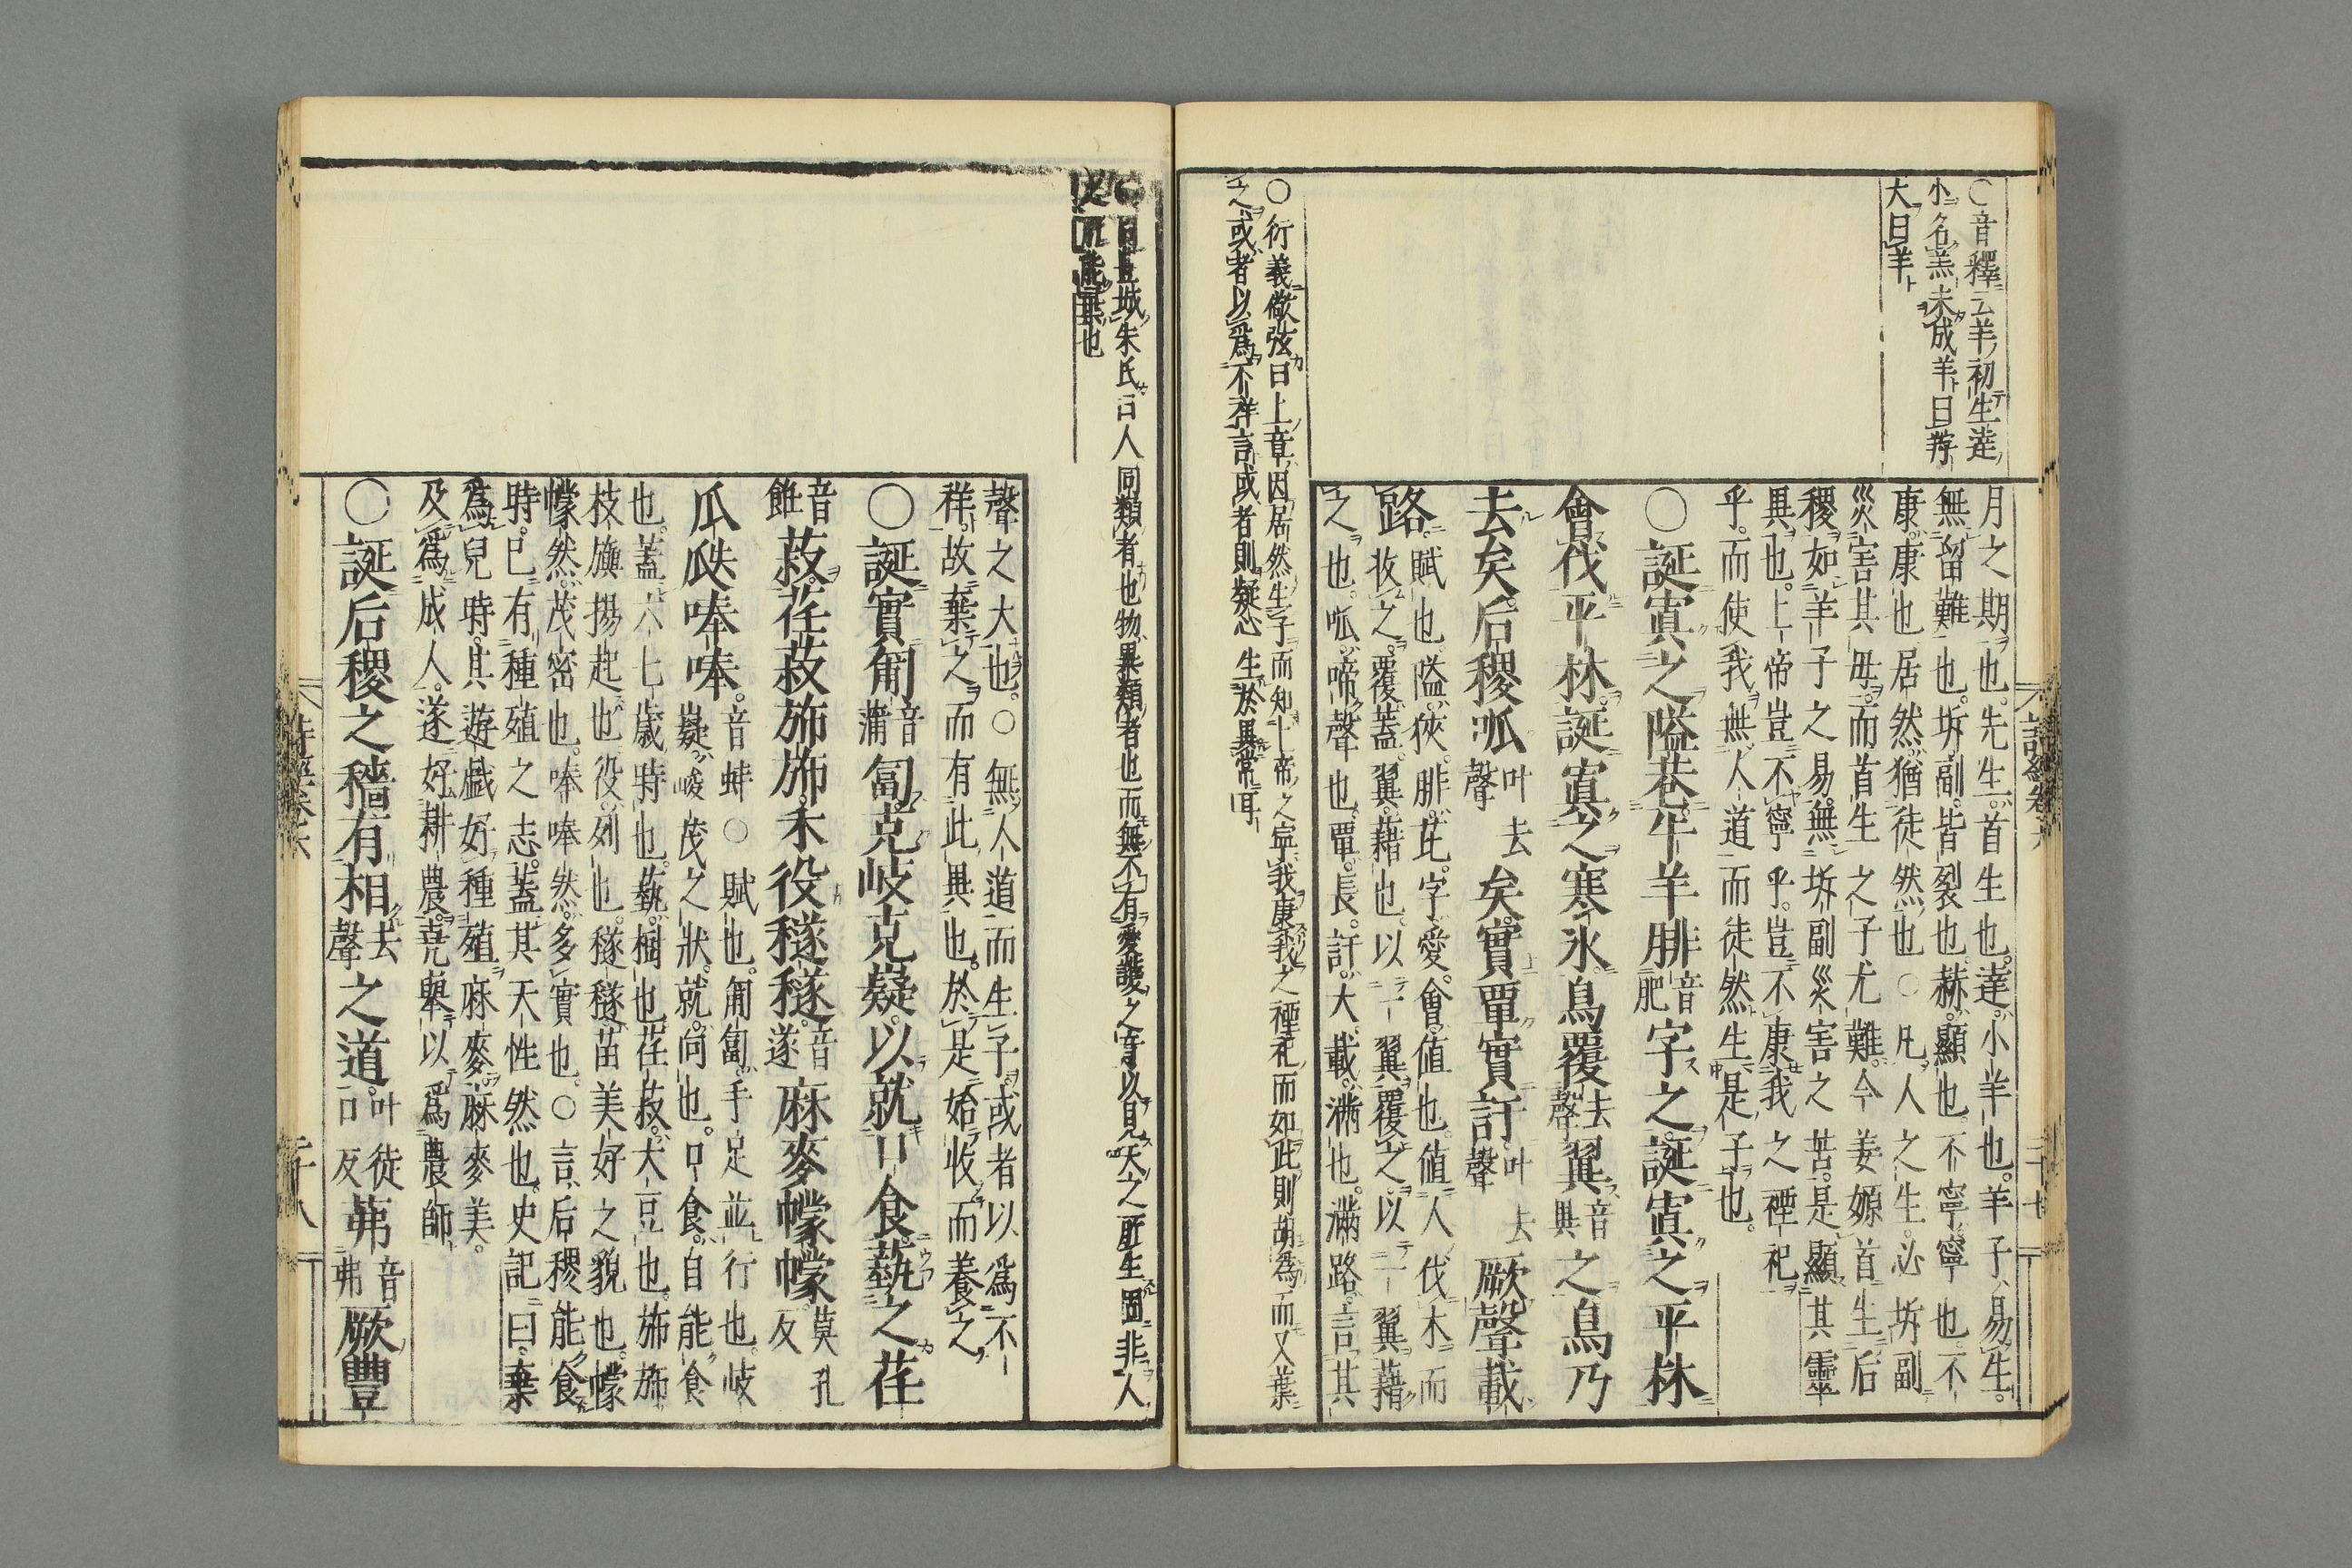 ○音釋云羊初生達
小名羔未成羊曰羜
大曰羊
月之期也先生首生也達小羊也羊子易生
無留難也坼副皆裂也赫顯也不寧寧也不
康康也居然猶徒然也○凡人之生必坼副
災害其母而首生之子尤難今姜嫄首生后
稷如羊子之易無坼副災害之苦是顯其靈
異也上帝豈不寧乎豈不康我之禋祀
乎而使我無人道而徒然生是子也
○誕寘之隘巷牛羊腓音肥字之誕寘之平林
會伐平林誕寘之寒冰鳥覆去聲翼音異之鳥乃
去矣后稷呱叶去聲矣實覃實訏叶去聲厥聲載
路賦也隘狹腓芘字愛會值也值人伐木而
收之覆蓋翼藉也以一翼覆之以一翼藉
之也呱啼聲也覃長訏大載滿也滿路言其
○衍義儆弦曰上章因居然生子而知上帝之寧我康我之禋祀而如此則胡爲而又棄
之或者以爲不祥言或者則疑心生於異常耳
○曰豐城朱氏曰人同類者也物異類者也而無不有愛護之意以見天之所生固非人
之所能棄也
聲之大也○無人道而生子或者以爲不
祥故棄之而有此異也於是始收而養之
○誕實匍音蒲匐克岐克嶷以就口食蓺之荏
菽音飪荏菽旆旆禾役穟穟音遂麻麥幪幪莫孔反
瓜瓞唪唪音蚌○賦也匍匐手足並行也岐
嶷峻茂之狀就向也口食自能食
也蓋六七歲時也蓺樹也荏菽大豆也旆旆
枝旟揚起也役列也穟穟苗美好之貌也幪
幪然茂密也唪唪然多實也○言后稷能食
時已有種殖之志蓋其天性然也史記曰棄
爲兒時其遊戲好種殖麻麥麻麥美
及爲成人遂好耕農堯舉以爲農師
○誕后稷之穡有相去聲之道叶徒口反茀音弗厥豐